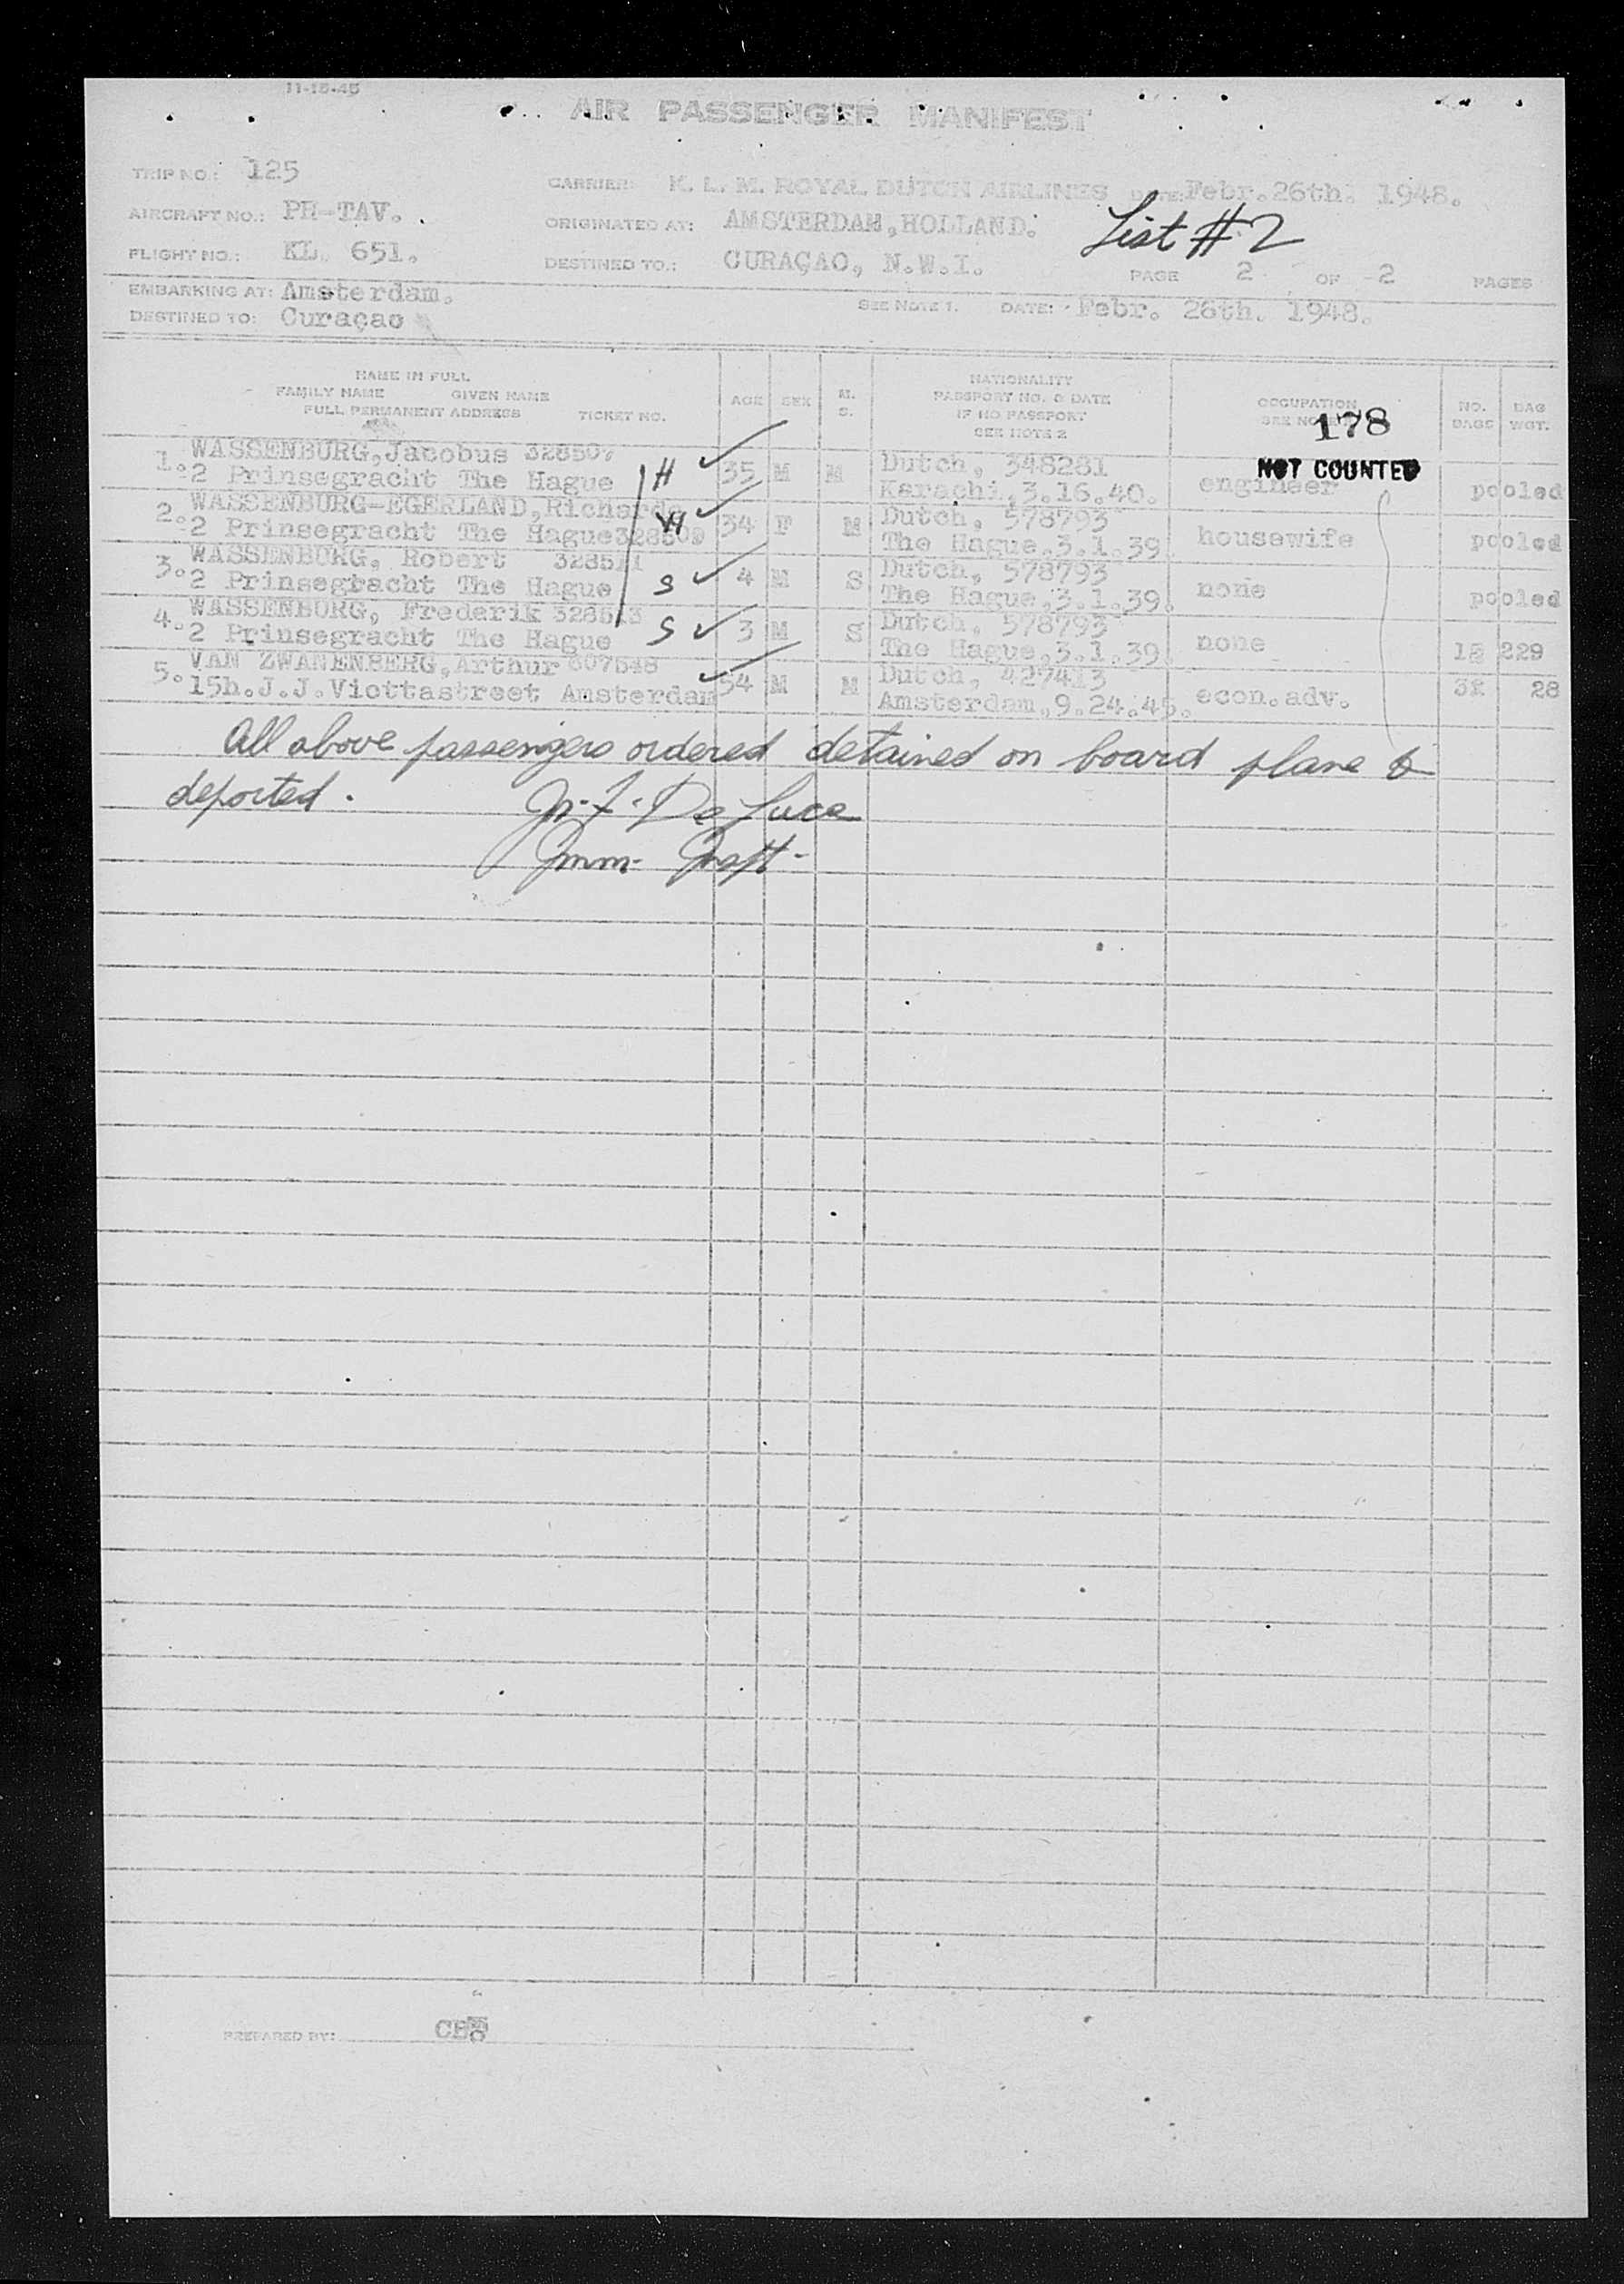 11-15-45
AIR PASSENGER MANIFEST
TRIP NO.: 125
CARRIER: K. L. M. ROYAL DUTCH AIRLINES DATE: Febr. 26th. 1948.
AIRCRAFT NO.: PH-TAV.
ORIGINATED AT: AMSTERDAM, HOLLAND.
List #2
FLIGHT NO.: KL. 651.
DESTINED TO.: CURAÇAO, N.W.I.
PAGE 2 OF 2 PAGES
EMBARKING AT: Amsterdam.
SEE NOTE 1. DATE: Febr. 26th. 1948.
DESTINED TO: Curaçao
NAME IN FULL
FAMILY NAME GIVEN NAME
FULL PERMANENT ADDRESS TICKET NO.
AGE SEX M. S.
NATIONALITY
PASSPORT NO. & DATE
IF NO PASSPORT
SEE NOTE 2
OCCUPATION
SEE NOTE
NO. BAGS
BAG WGT.
178
NOT COUNTED
1. WASSENBURG, Jacobus 328507 H 35 M M Dutch, 348281 engineer pooled
2 Prinsegracht The Hague Karachi, 3.16.40.
2. WASSENBURG-EGERLAND, Richarda W 34 F M Dutch, 578793 housewife pooled
2 Prinsegracht The Hague 328509 The Hague, 3.1.39.
3. WASSENBURG, Robert 328511 S 4 M S Dutch, 578793 none pooled
2 Prinsegracht The Hague The Hague, 3.1.39.
4. WASSENBURG, Frederik 328513 S 3 M S Dutch, 578793 none 229
2 Prinsegracht The Hague The Hague, 3.1.39.
5. VAN ZWANENBERG, Arthur 607548 54 M M Dutch, 427413 econ. adv. 28
15h. J.J. Viottastreet Amsterdam Amsterdam, 9.24.45.
All above passengers ordered detained on board plane &
deported.
De Luca
Imm. Inspt.
PREPARED BY: